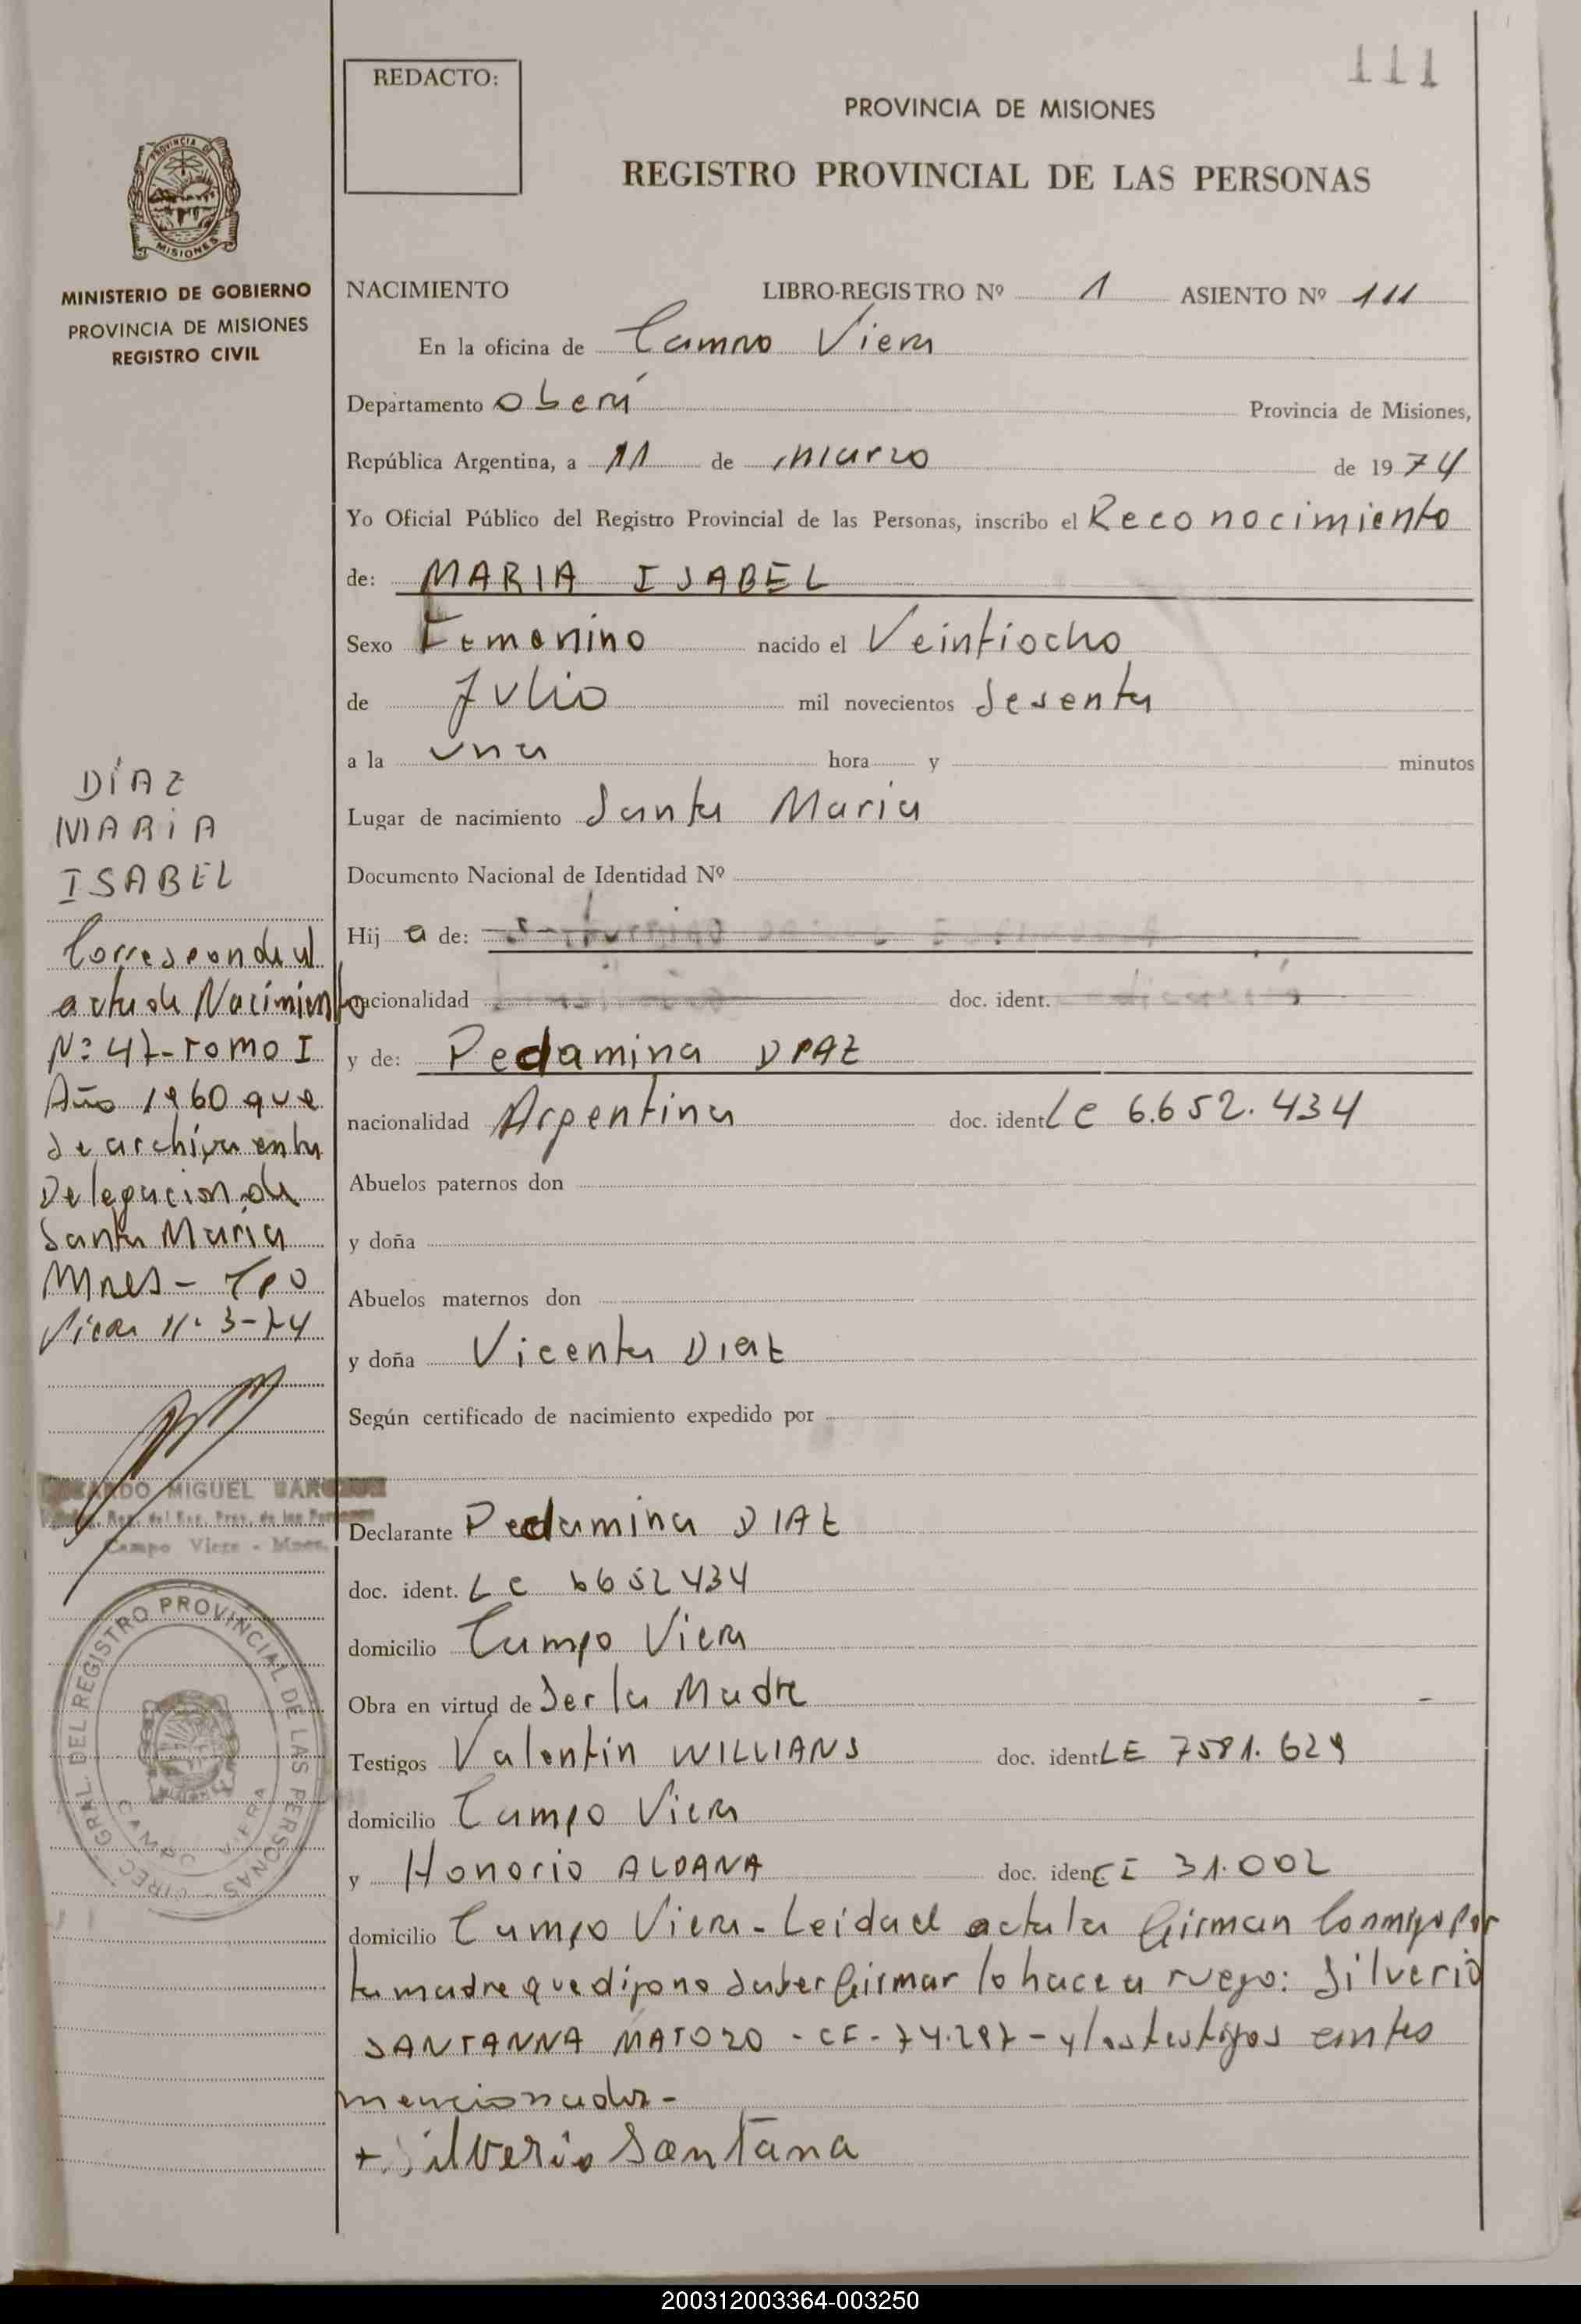 111
REDACTO:
PROVINCIA DE MISIONES
REGISTRO PROVINCIAL DE LAS PERSONAS
PROVINCIA DE
MISIONES
MINISTERIO DE GOBIERNO
PROVINCIA DE MISIONES
REGISTRO CIVIL
NACIMIENTO LIBRO-REGISTRO Nº 1 ASIENTO Nº 111
En la oficina de Campo Viera
Departamento Oberá Provincia de Misiones,
República Argentina, a 11 de marzo de 1974
Yo Oficial Público del Registro Provincial de las Personas, inscribo el Reconocimiento
de: MARIA ISABEL
Sexo Femenino nacido el Veintiocho
de Julio mil novecientos Sesenta
a la una hora y minutos
Lugar de nacimiento Santa Maria
Documento Nacional de Identidad Nº
Hij a de:
nacionalidad doc. ident.
y de: Pedamina DIAZ
nacionalidad Argentina doc. ident LC 6.652.434
Abuelos paternos don
y doña
Abuelos maternos don
y doña Vicenta Diaz
Según certificado de nacimiento expedido por
Declarante Pedamina DIAZ
doc. ident. LC 6652434
domicilio Campo Viera
Obra en virtud de Ser la Madre
Testigos Valentin WILLIANS doc. ident LE 7581.629
domicilio Campo Viera
y Honorio ALDANA doc. iden CI 31.002
domicilio Campo Viera - Leida el acta la firman conmigo por
la madre que dijo no saber firmar lo hace a ruego: Silverio
SANTANNA MATOZO - CF - 74.297 - y los testigos antes
mencionados -
+ Silverio Santana
DÍAZ
MARIA
ISABEL
Corresponde al
acta de Nacimiento
Nº 47 - Tomo I
Año 1960 que
se archiva en la
Delegacion de
Santa Maria
Mnes - Cpo
Viera 11-3-74
MIGUEL
Campo Viera - Mnes.
DIREC. GRAL. DEL REGISTRO PROVINCIAL DE LAS PERSONAS
CAMPO VIERA
200312003364-003250